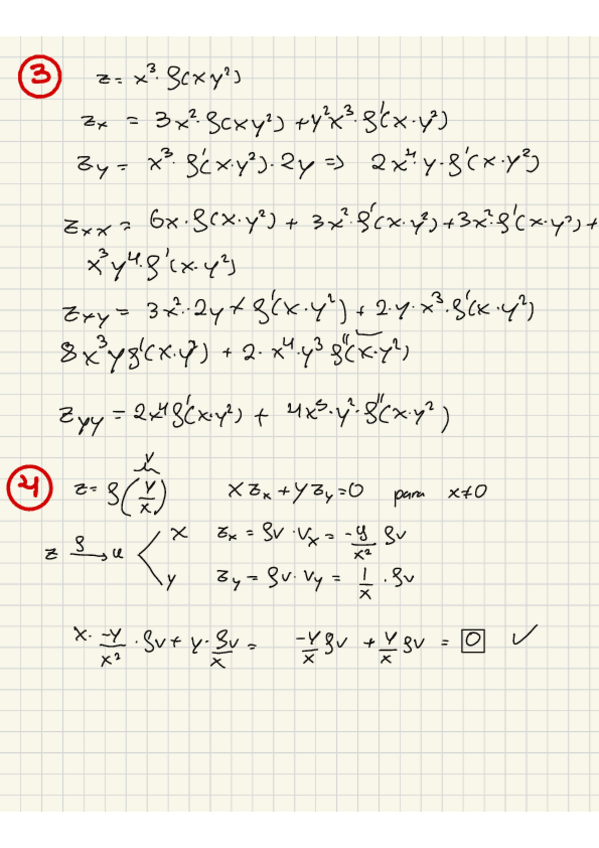 3 z = x³·f(xy²)
zₓ = 3x²·f(xy²) + y²x³·f'(x·y²)
z_y = x³·f'(x·y²)·2y => 2x⁴·y·f'(x·y²)
zₓₓ = 6x·f(x·y²) + 3x²·f'(x·y²) + 3x²·f'(x·y²) +
x³y⁴·f'(x·y²)
z_xy = 3x²·2y x f'(x·y²) + 2·y·x³·f'(x·y²)
8x³yf'(x·y²) + 2·x⁴·y³ f''(x·y²)
z_yy = 2x⁴f'(x·y²) + 4x⁵·y²·f''(x·y²)
v
4 z = f(y/x) xzₓ + yz_y = 0 para x≠0
z f→ u < x zₓ = fv·vₓ = -y/x² fv
y z_y = fv·v_y = 1/x · fv
x· -y/x² · fv + y· fv/x = -y/x fv + y/x fv = 0 ✓